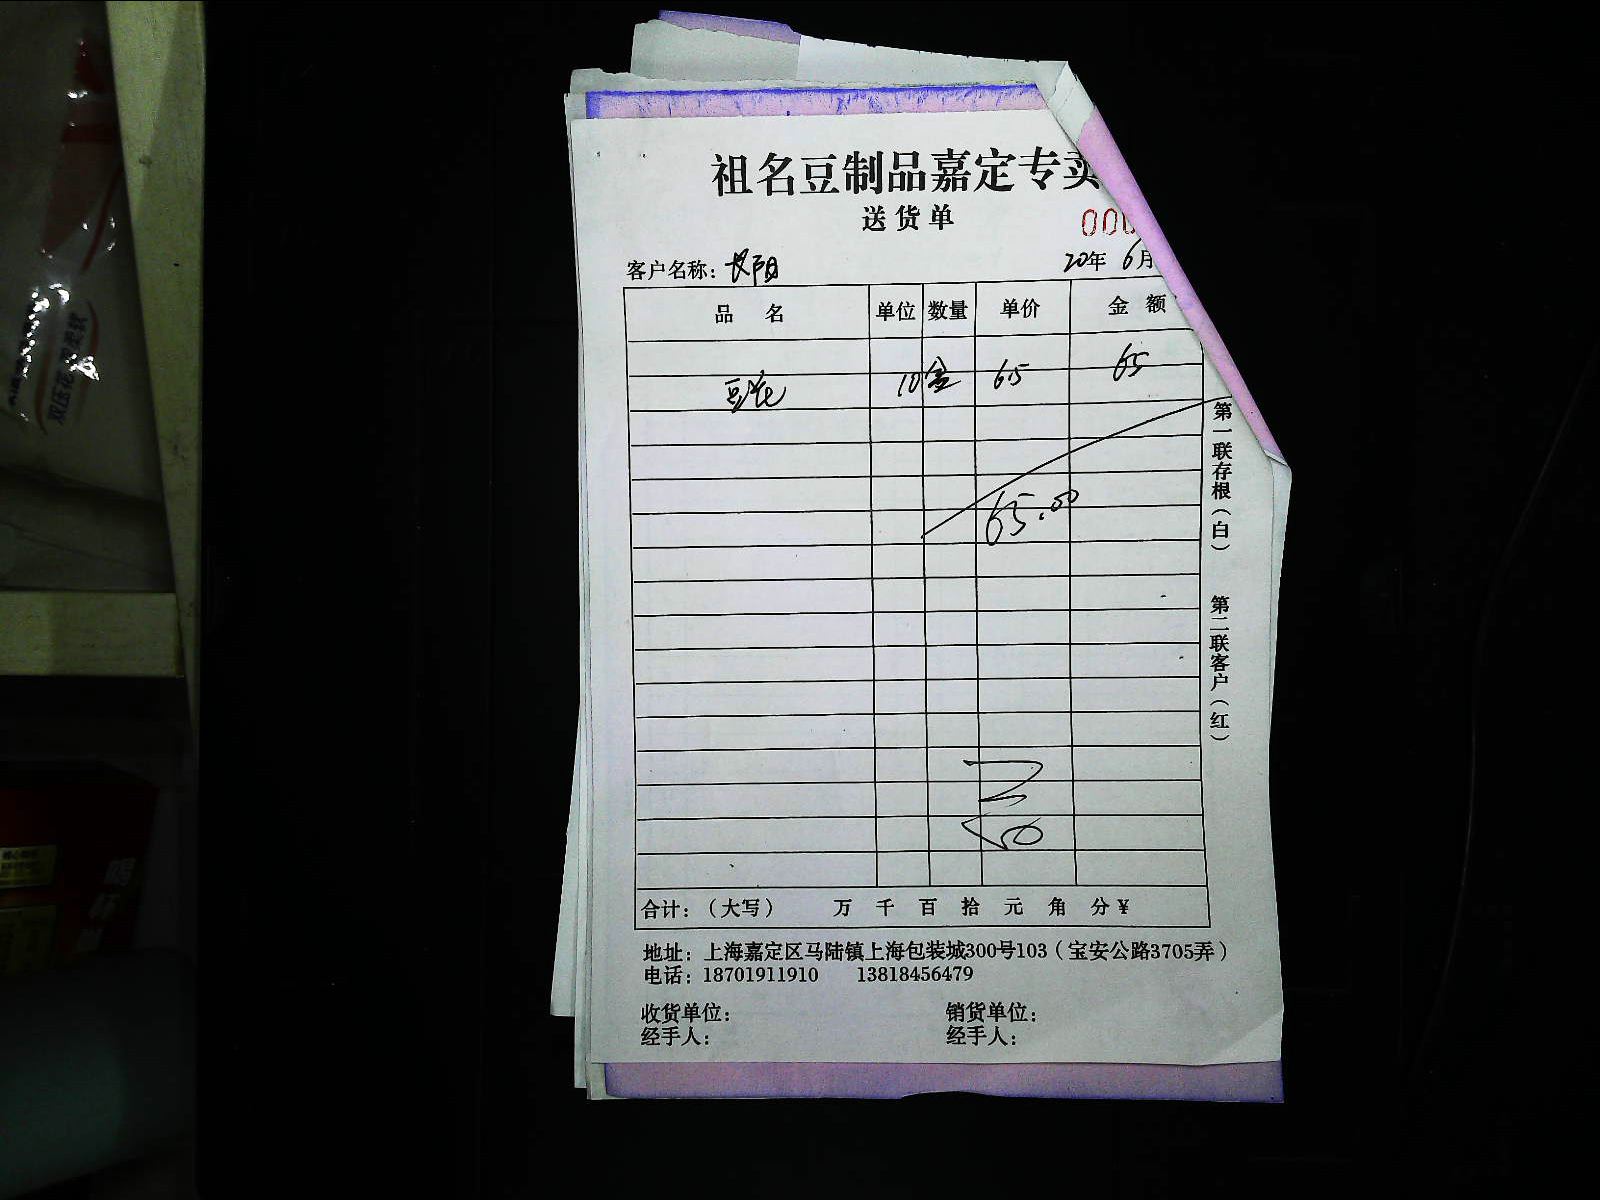 祖名豆制品嘉定专卖
送货单
000
客户名称：长阳
20年 6月
品 名 单位 数量 单价 金 额
豆花 10盒 6.5 65
65.00
合计：（大写） 万 千 百 拾 元 角 分 ¥
地址：上海嘉定区马陆镇上海包装城300号103（宝安公路3705弄）
电话：18701911910 13818456479
收货单位： 销货单位：
经手人： 经手人：
第一联存根（白） 第二联客户（红）
双压花